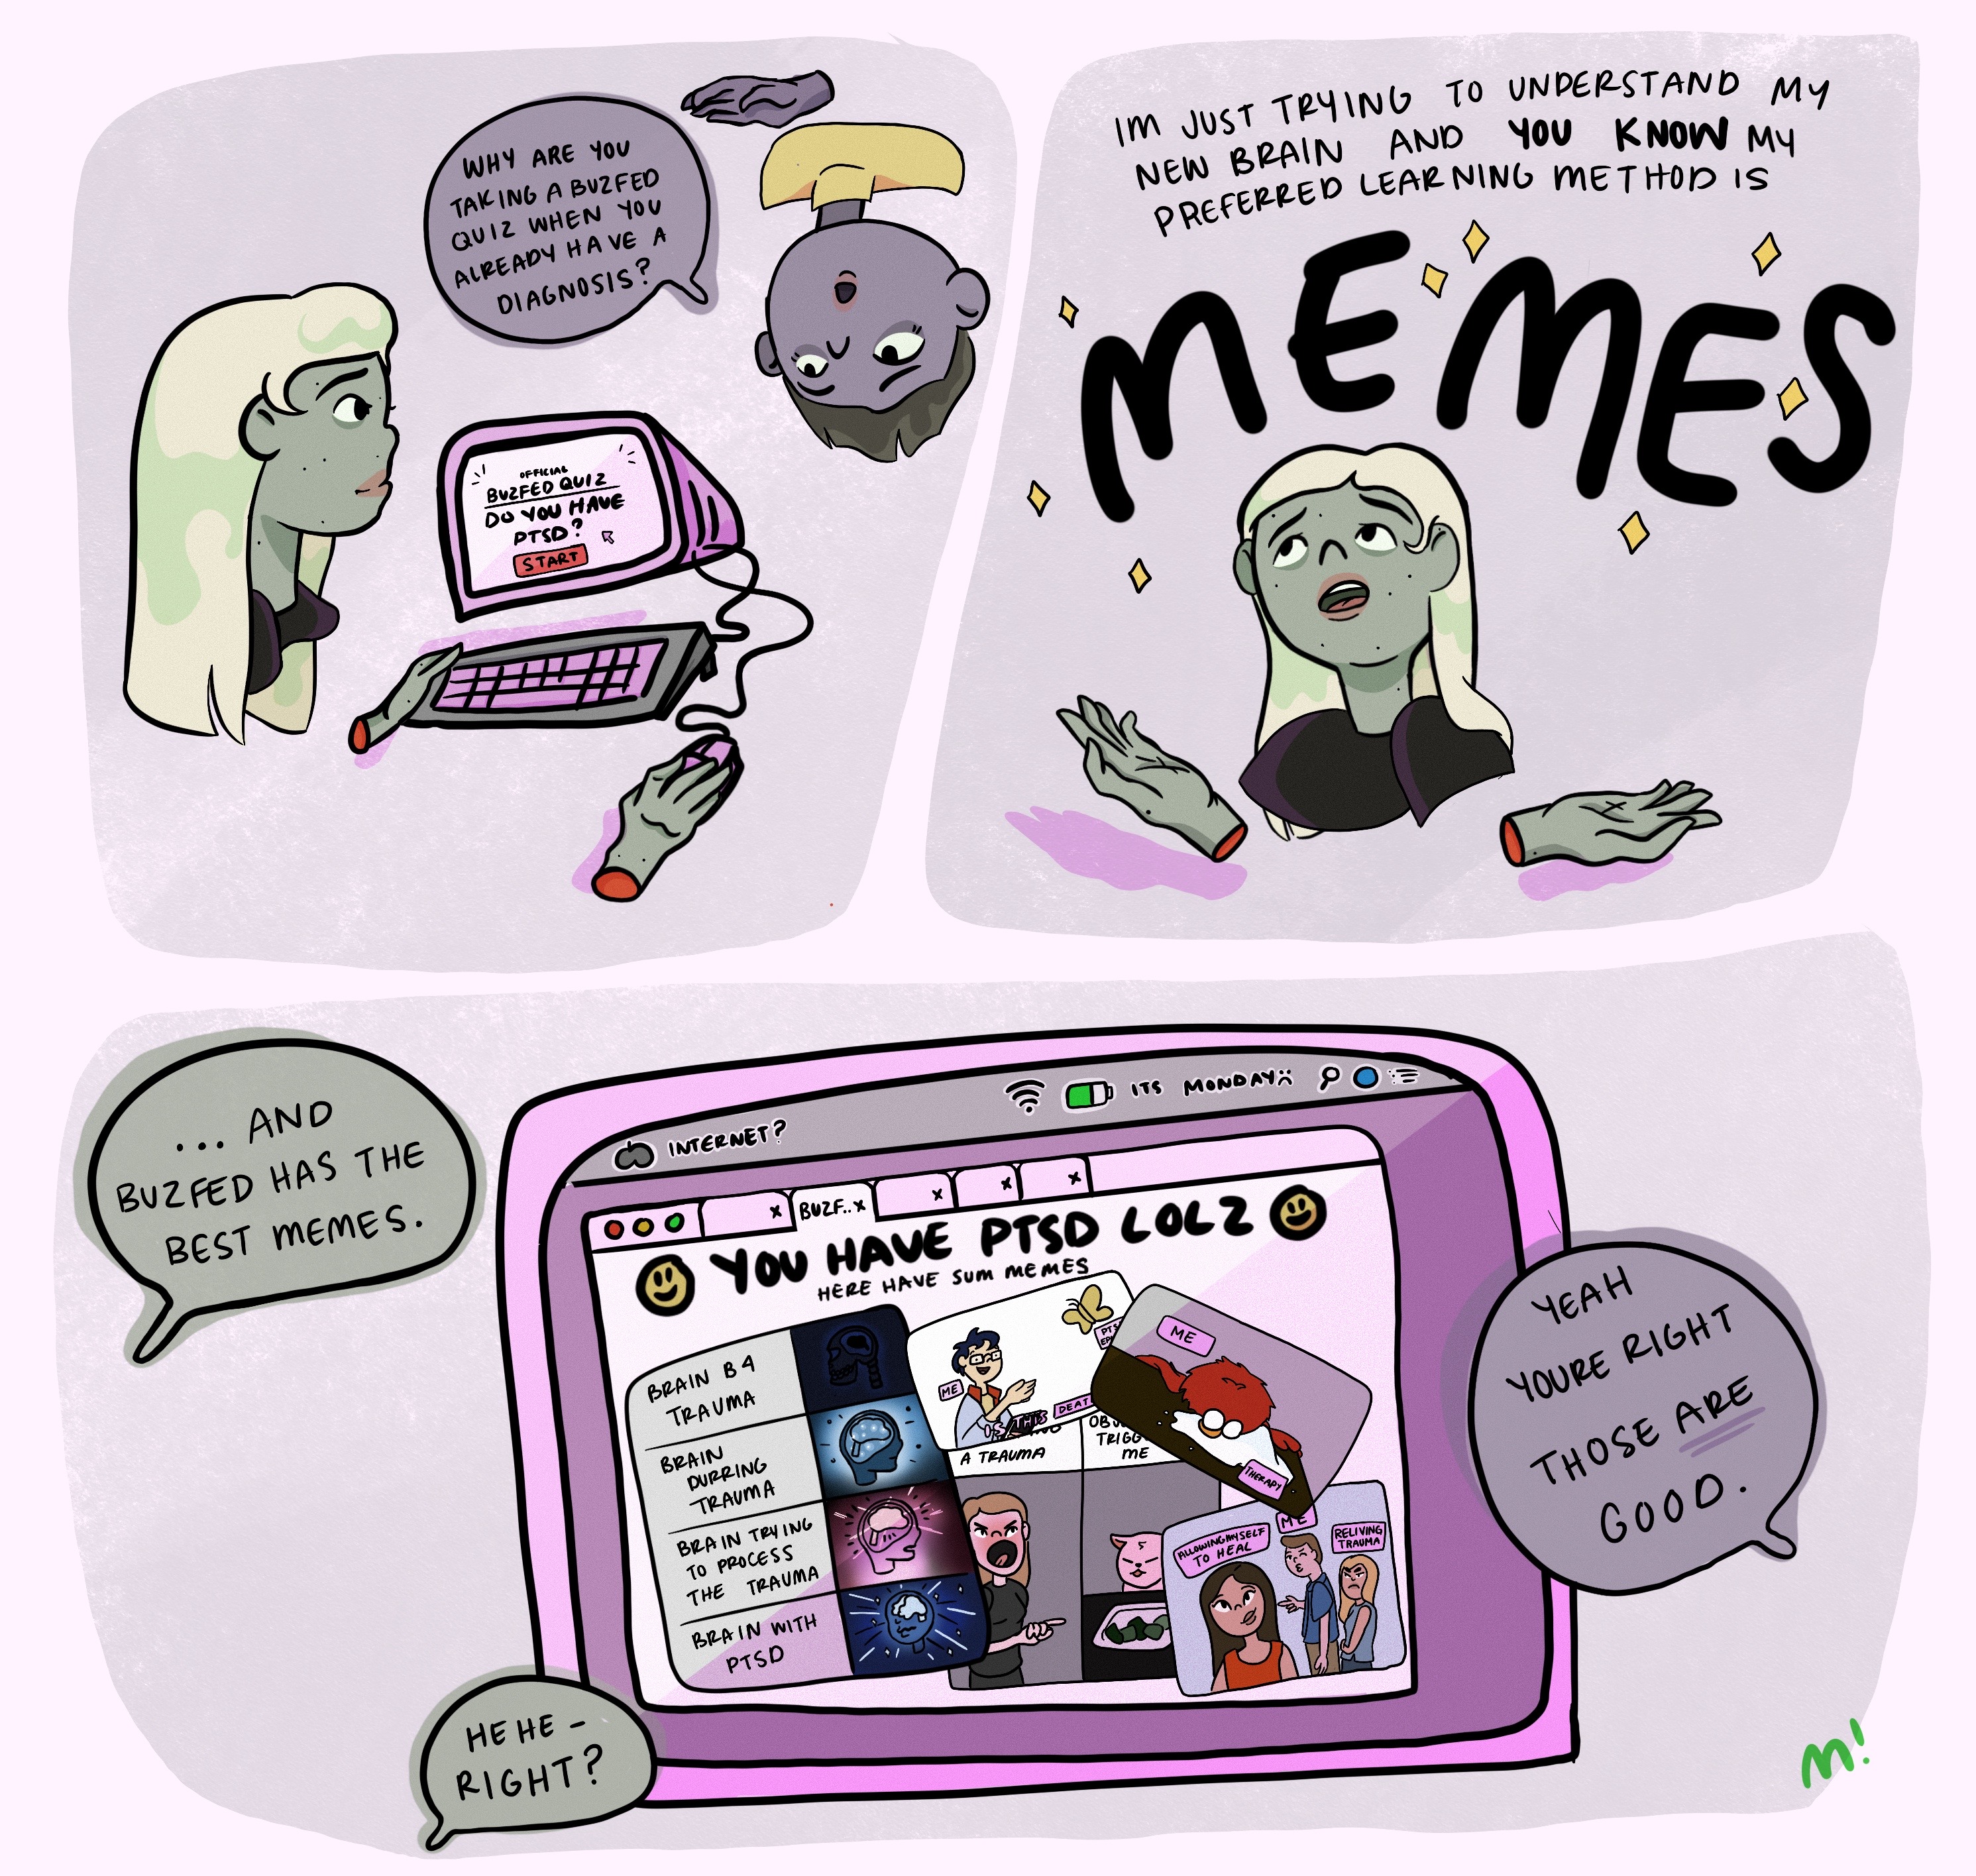 WHY ARE YOU
TAKING A BUZFED
QUIZ WHEN YOU
ALREADY HAVE A
DIAGNOSIS?
OFFICIAL
BUZFED QUIZ
DO YOU HAVE
PTSD?
START
IM JUST TRYING TO UNDERSTAND MY
NEW BRAIN AND YOU KNOW MY
PREFERRED LEARNING METHOD IS
MEMES
... AND
BUZFED HAS THE
BEST MEMES.
INTERNET?
ITS MONDAY
BUZF..X
YOU HAVE PTSD LOLZ
HERE HAVE SUM MEMES
BRAIN B4
TRAUMA
BRAIN
DURRING
TRAUMA
BRAIN TRYING
TO PROCESS
THE TRAUMA
BRAIN WITH
PTSD
ME
IS THIS
DEAT
ME
THERAPY
A TRAUMA
TRIGG
ME
ALLOWING MYSELF
TO HEAL
ME
RELIVING
TRAUMA
YEAH
YOURE RIGHT
THOSE ARE
GOOD.
HEHE -
RIGHT?
M!